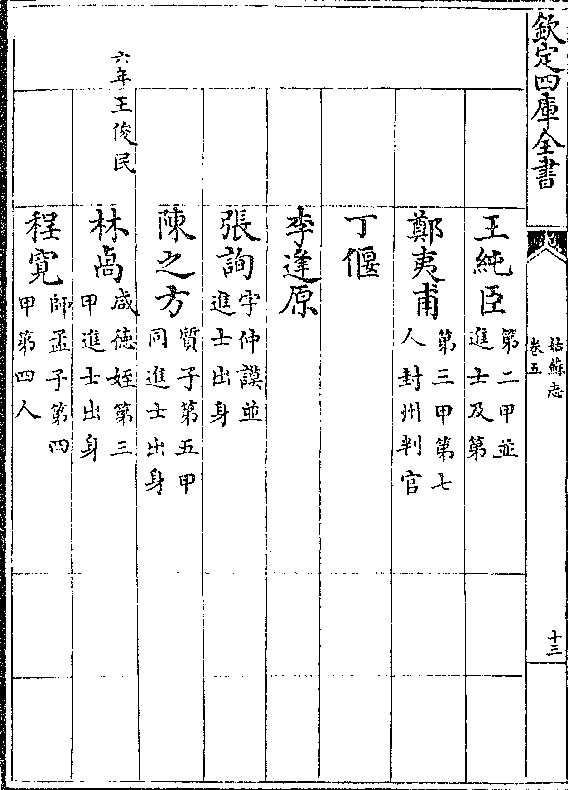 欽定四庫全書
姑蘇志
卷五
十三
王純臣
第二甲並
進士及第
鄭夷甫
第三甲第七
人封州判官
丁偃
李逢原
張詢
字仲謨並
進士出身
陳之方
質子第五甲
同進士出身
六年王俊民
林卨
咸德姪第三
甲進士出身
程寬
師孟子第四
甲第四人